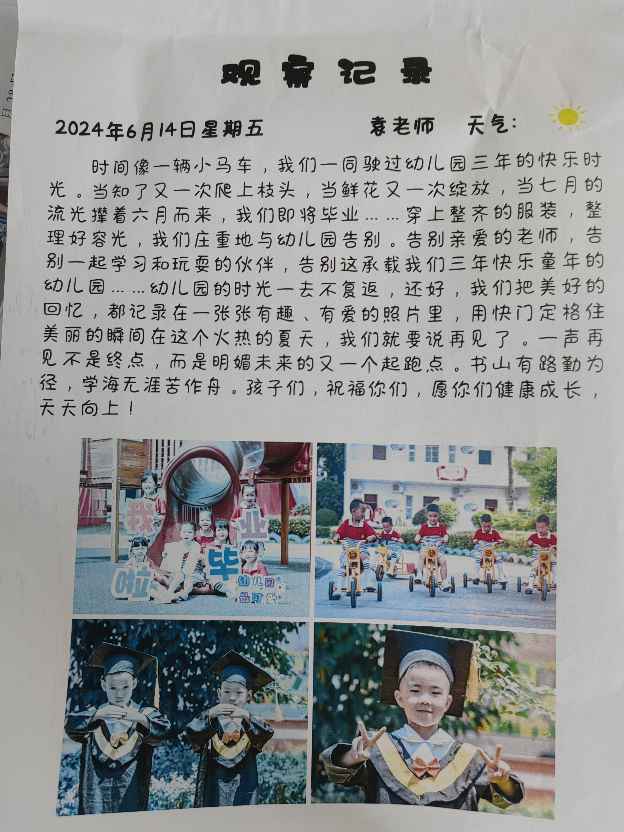 观察记录
2024年6月14日星期五 袁老师 天气:
时间像一辆小马车，我们一同驶过幼儿园三年的快乐时
光。当知了又一次爬上枝头，当鲜花又一次绽放，当七月的
流光撵着六月而来，我们即将毕业……穿上整齐的服装，整
理好容光，我们庄重地与幼儿园告别。告别亲爱的老师，告
别一起学习和玩耍的伙伴，告别这承载我们三年快乐童年的
幼儿园……幼儿园的时光一去不复返，还好，我们把美好的
回忆，都记录在一张张有趣、有爱的照片里，用快门定格住
美丽的瞬间在这个火热的夏天，我们就要说再见了。一声再
见不是终点，而是明媚未来的又一个起跑点。书山有路勤为
径，学海无涯苦作舟。孩子们，祝福你们，愿你们健康成长，
天天向上！
我 业
啦 毕
幼儿园